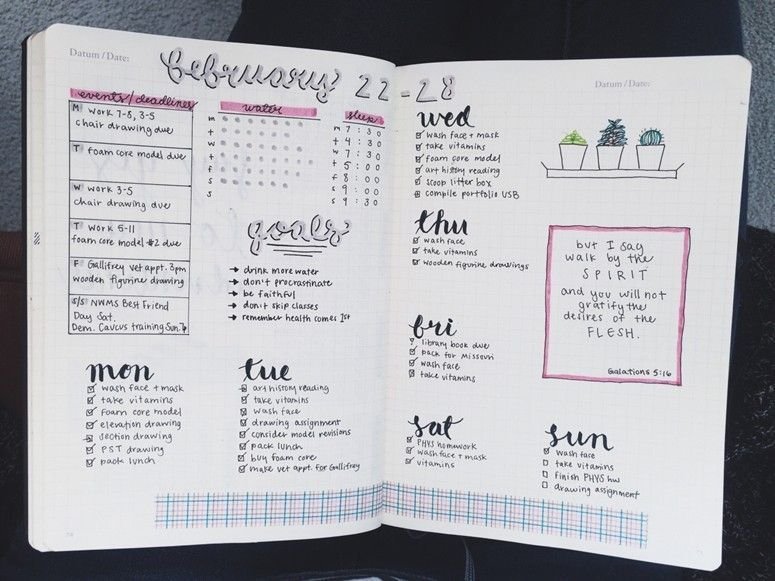 Datum / Date:
february 22-28
events/deadlines
M work 7-8, 3-5
chair drawing due
T foam core model due
W work 3-5
chair drawing due
T work 5-11
foam core model #2 due
F Gallifrey vet appt. 3pm
wooden figurine drawing
S/S NWMS Best Friend
Day Sat.
Dem. Caucus training Sun.
water
m
t
w
t
f
s
s
sleep
m 7:30
t 4:30
w 7:30
t 5:00
f 8:00
s 9:00
s 9:30
goals
→ drink more water
→ don't procrastinate
→ be faithful
→ don't skip classes
→ remember health comes 1st
mon
wash face + mask
take vitamins
foam core model
elevation drawing
section drawing
PST drawing
pack lunch
tue
art history reading
take vitamins
wash face
drawing assignment
consider model revisions
pack lunch
buy foam core
make vet appt. for Gallifrey
Datum / Date:
wed
wash face + mask
take vitamins
foam core model
art history reading
scoop litter box
compile portfolio USB
thu
wash face
take vitamins
wooden figurine drawings
fri
library book due
pack for Missouri
wash face
take vitamins
sat
PHYS homework
wash face + mask
vitamins
sun
wash face
take vitamins
finish PHYS hw
drawing assignment
but I say
walk by the
SPIRIT
and you will not
gratify the
desires of the
FLESH.
Galations 5:16